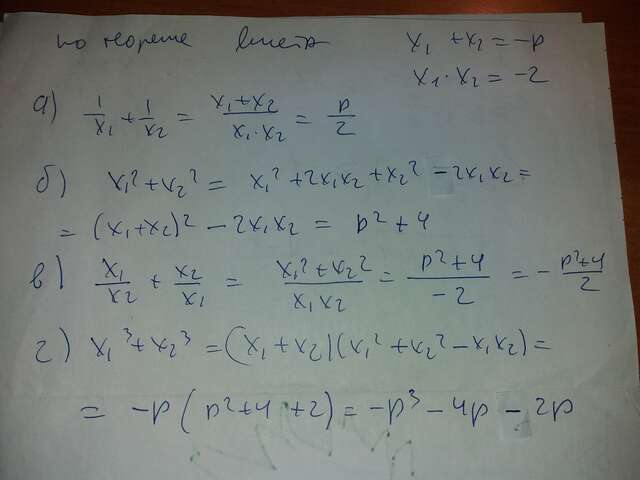 по теореме Виета x₁ + x₂ = -p
x₁·x₂ = -2
а) 1/x₁ + 1/x₂ = (x₁+x₂)/(x₁·x₂) = p/2
б) x₁² + x₂² = x₁² + 2x₁x₂ + x₂² - 2x₁x₂ =
= (x₁+x₂)² - 2x₁x₂ = p² + 4
в) x₁/x₂ + x₂/x₁ = (x₁²+x₂²)/(x₁x₂) = (p²+4)/(-2) = -(p²+4)/2
г) x₁³ + x₂³ = (x₁+x₂)(x₁²+x₂² - x₁x₂) =
= -p(p²+4+2) = -p³ - 4p - 2p